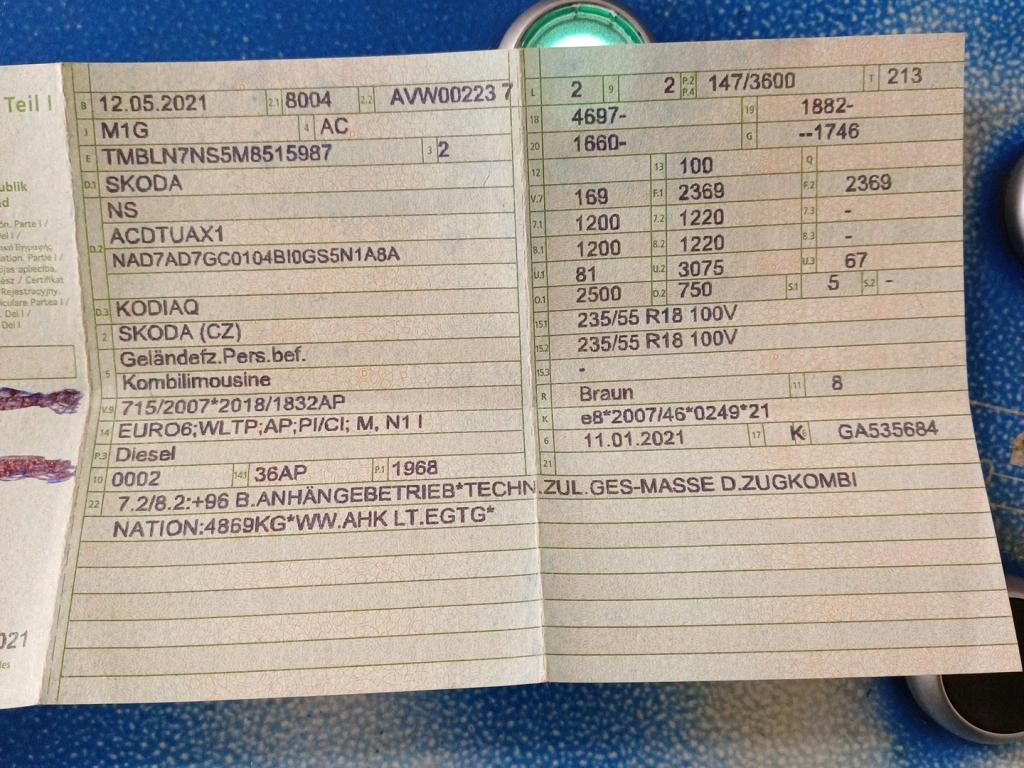 Teil I
ublik
d
ón. Parte I /
el I /
ation. Partie I /
ojas apliecība.
ész / Certifikat
Rejestracyjny.
iculare Partea I /
. Del I /
Del I
021
des
B 12.05.2021 2.1 8004 2.2 AVW00223 7
J M1G 4 AC
E TMBLN7NS5M8515987 3 2
D.1 SKODA
NS
D.2 ACDTUAX1
NAD7AD7GC0104BI0GS5N1A8A
D.3 KODIAQ
2 SKODA (CZ)
5 Geländefz.Pers.bef.
Kombilimousine
V.9 715/2007*2018/1832AP
14 EURO6;WLTP;AP;PI/CI; M, N1 I
P.3 Diesel
10 0002 14.1 36AP P.1 1968
L 2 9 2 P.2 P.4 147/3600 T 213
18 4697- 19 1882-
20 1660- G --1746
12 13 100 Q
V.7 169 F.1 2369 F.2 2369
7.1 1200 7.2 1220 7.3 -
8.1 1200 8.2 1220 8.3 -
U.1 81 U.2 3075 U.3 67
O.1 2500 O.2 750 S.1 5 S.2 -
15.1 235/55 R18 100V
15.2 235/55 R18 100V
15.3 -
R Braun 11 8
K e8*2007/46*0249*21
6 11.01.2021 17 K GA535684
21
22 7.2/8.2:+96 B.ANHÄNGEBETRIEB*TECHN.ZUL.GES-MASSE D.ZUGKOMBI
NATION:4869KG*WW.AHK LT.EGTG*